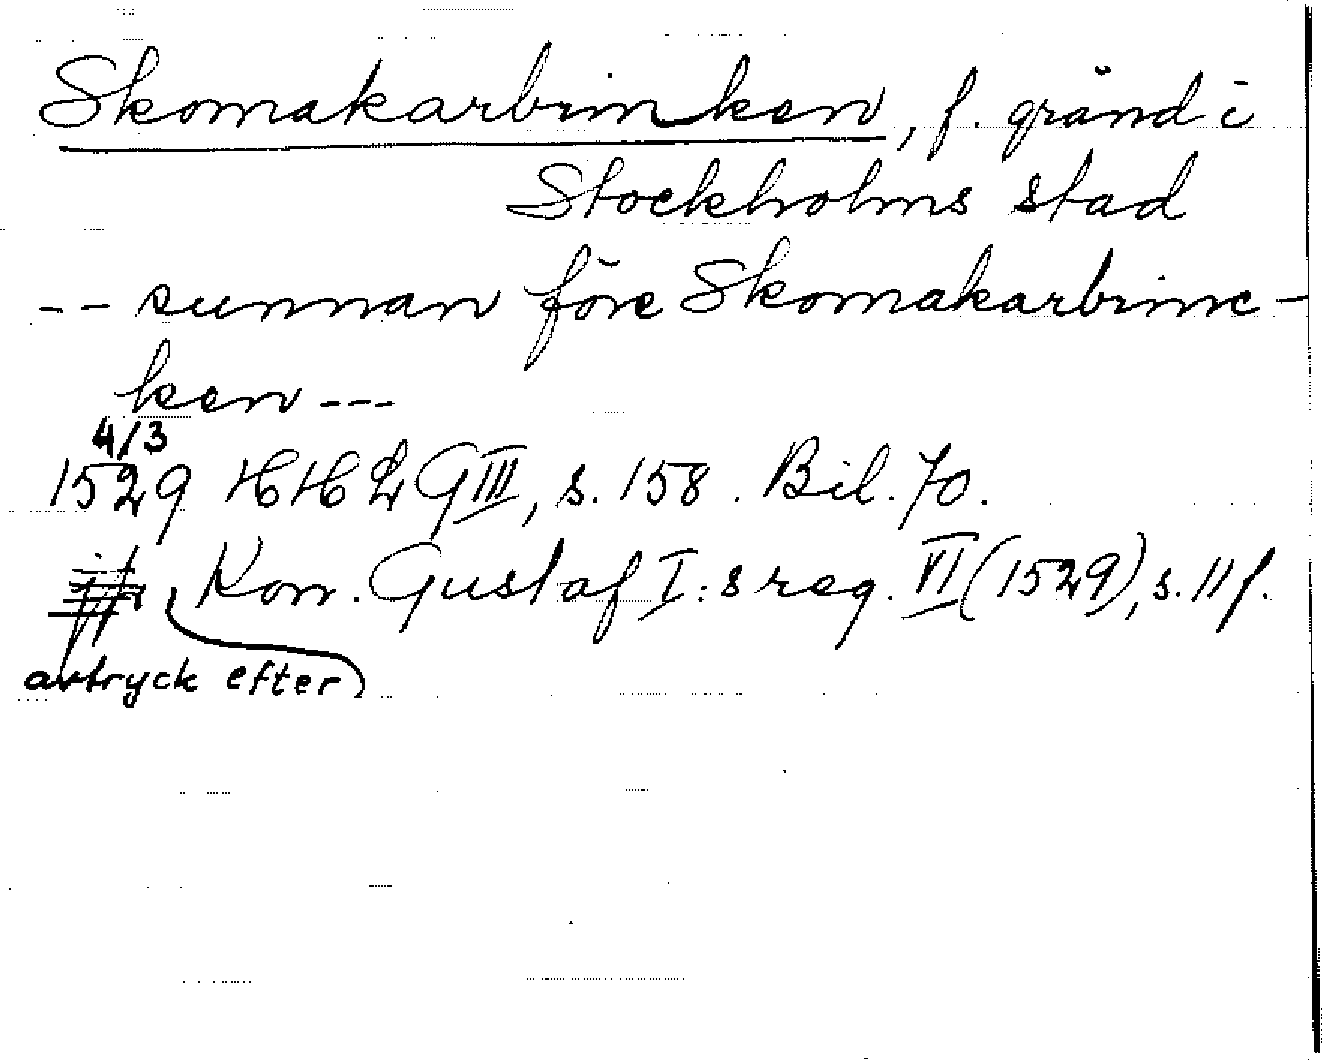 Skomakarbrinken, f. gränd i
Stockholms stad
-- sunnan före Skomakarbrinc-
ken ---
4/3
1529 HHLG III, s. 158. Bil. 70.
Kon. Gustaf I:s reg. VI (1529), s. 11 f.
avtryck efter